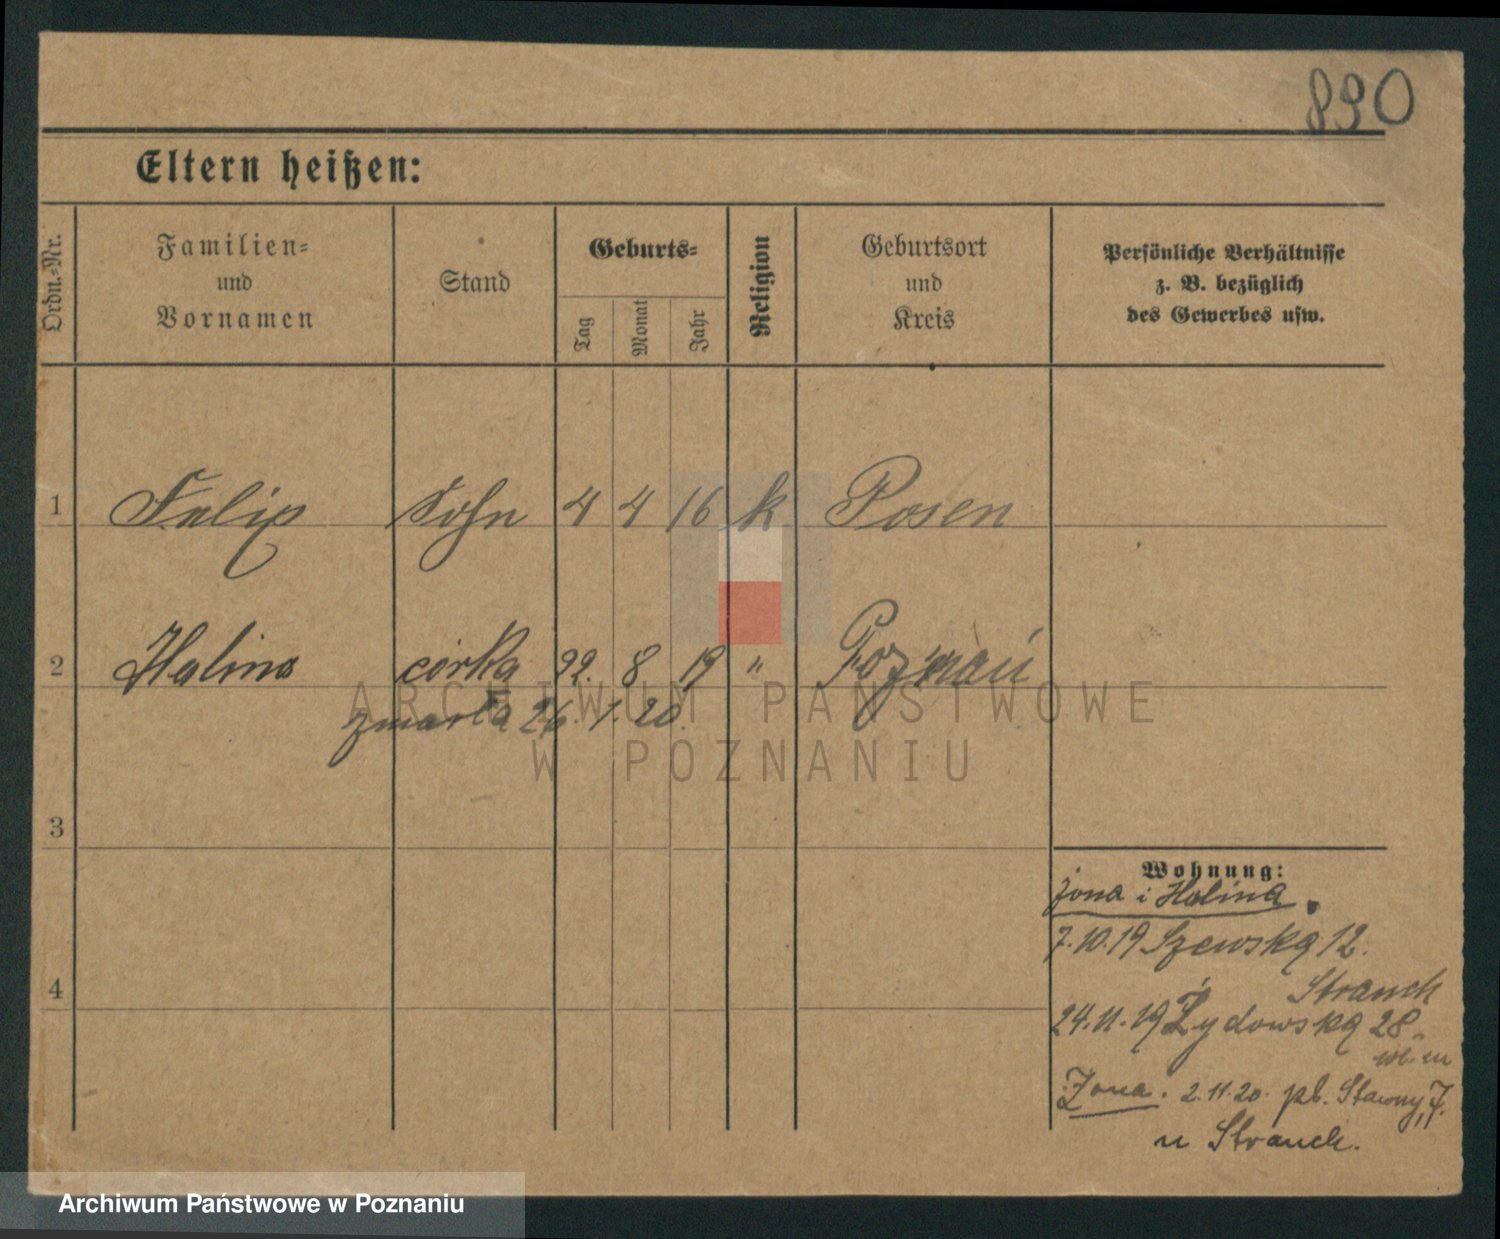 890
Eltern heißen:
Ordn.=Nr.
Familien=
und
Vornamen
Stand
Geburts=
Tag
Monat
Jahr
Religion
Geburtsort
und
Kreis
Persönliche Verhältnisse
z. B. bezüglich
des Gewerbes usw.
1 Felix Sohn 4 4 16 k Posen
2 Halina córka 22. 8 19 " Poznań
zmarła 26.1.20.
ARCHIWUM PAŃSTWOWE
W POZNANIU
3
Wohnung:
żona i Halina.
7.10.19 Szewska 12.
Strauch
4
24.11.19 Żydowska 28
Żona. 2.11.20. pl. Stawny 7.
u Strauch.
Archiwum Państwowe w Poznaniu